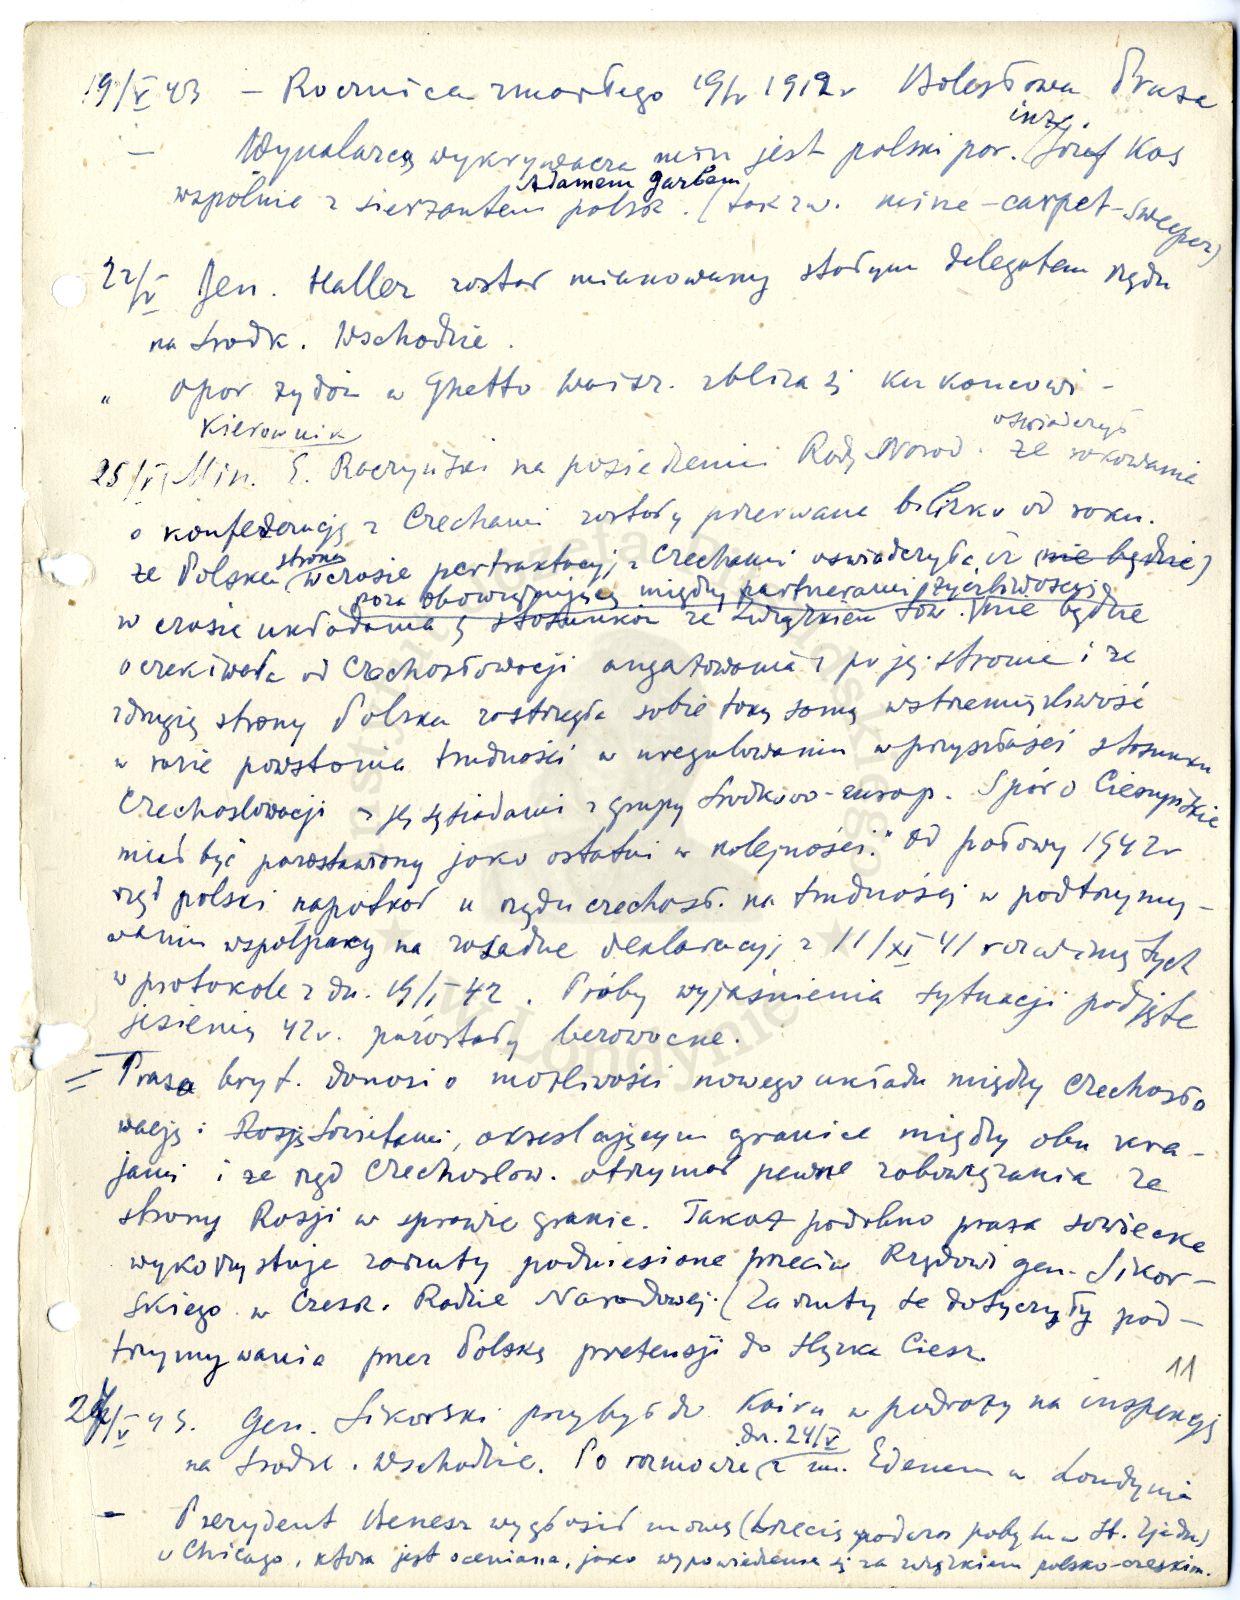 19/V 43 – Rocznica zmarłego 19/V 1912 r Bolesława Prusa
inż.
– Wynalazcą wykrywacza min jest polski por. Józef Kos
Adamem Garbem
wspólnie z sierżantem polsk. (tak zw. mine-carpet-sweeper)
22/V Gen. Haller został mianowany stałym delegatem rządu
na Środk. Wschodzie.
" Opór żydów w Ghetto Warsz. zbliża się ku końcowi –
Kierownik oświadczył
25/V Min. E. Raczyński na posiedzeniu Rady Narod. że rokowania
o konfederację z Czechami zostały przerwane blisko od roku.
strona
że Polska w czasie pertraktacji z Czechami oświadczyła iż (nie będzie)
poza obowiązującą między partnerami życzliwością
w czasie układania się stosunków ze Związkiem Sow. nie będzie
oczekiwała od Czechosłowacji angażowania się po jej stronie i że
z drugiej strony Polska zastrzegła sobie taką samą wstrzemięźliwość
w razie powstania trudności w uregulowaniu w przyszłości stosunku
Czechosłowacji z jej sąsiadami z grupy środkowo-europ. Spór o Cieszyńskie
miał być pozostawiony jako ostatni w kolejności." Od połowy 1942 r
rząd polski napotkał u rządu czechosł. na trudności w podtrzymy-
waniu współpracy na zasadzie deklaracji z 11/XI 41 rozwiniętych
w protokole z dn. 19/I 42. Próby wyjaśnienia sytuacji podjęte
jesienią 42 r. pozostały bezowocne.
= Prasa bryt. donosi o możliwości nowego układu między Czechosło
wacją i Rosją Sowietami, określającym granice między obu kra-
jami i że rząd Czechosłow. otrzymał pewne zobowiązania ze
strony Rosji w sprawie granic. Także podobno prasa sowiecka
wykorzystuje zarzuty podniesione przeciw Rządowi gen. Sikor-
skiego w Czesk. Radzie Narodowej. (Zarzuty te dotyczyły pod-
trzymywania przez Polskę pretensji do Śląska Ciesz.
11
27/V 43. Gen. Sikorski przybył do Kairu w podróży na inspekcję
dn. 24/V
na Środk. Wschodzie. Po rozmowie z m. Edenem w Londynie
– Prezydent Benesz wygłosił mowę (trzecią podczas pobytu w St. Zjedn)
w Chicago, która jest oceniana, jako wypowiedzenie się za związkiem polsko-czeskim.
Instytut Józefa Piłsudskiego
w Londynie